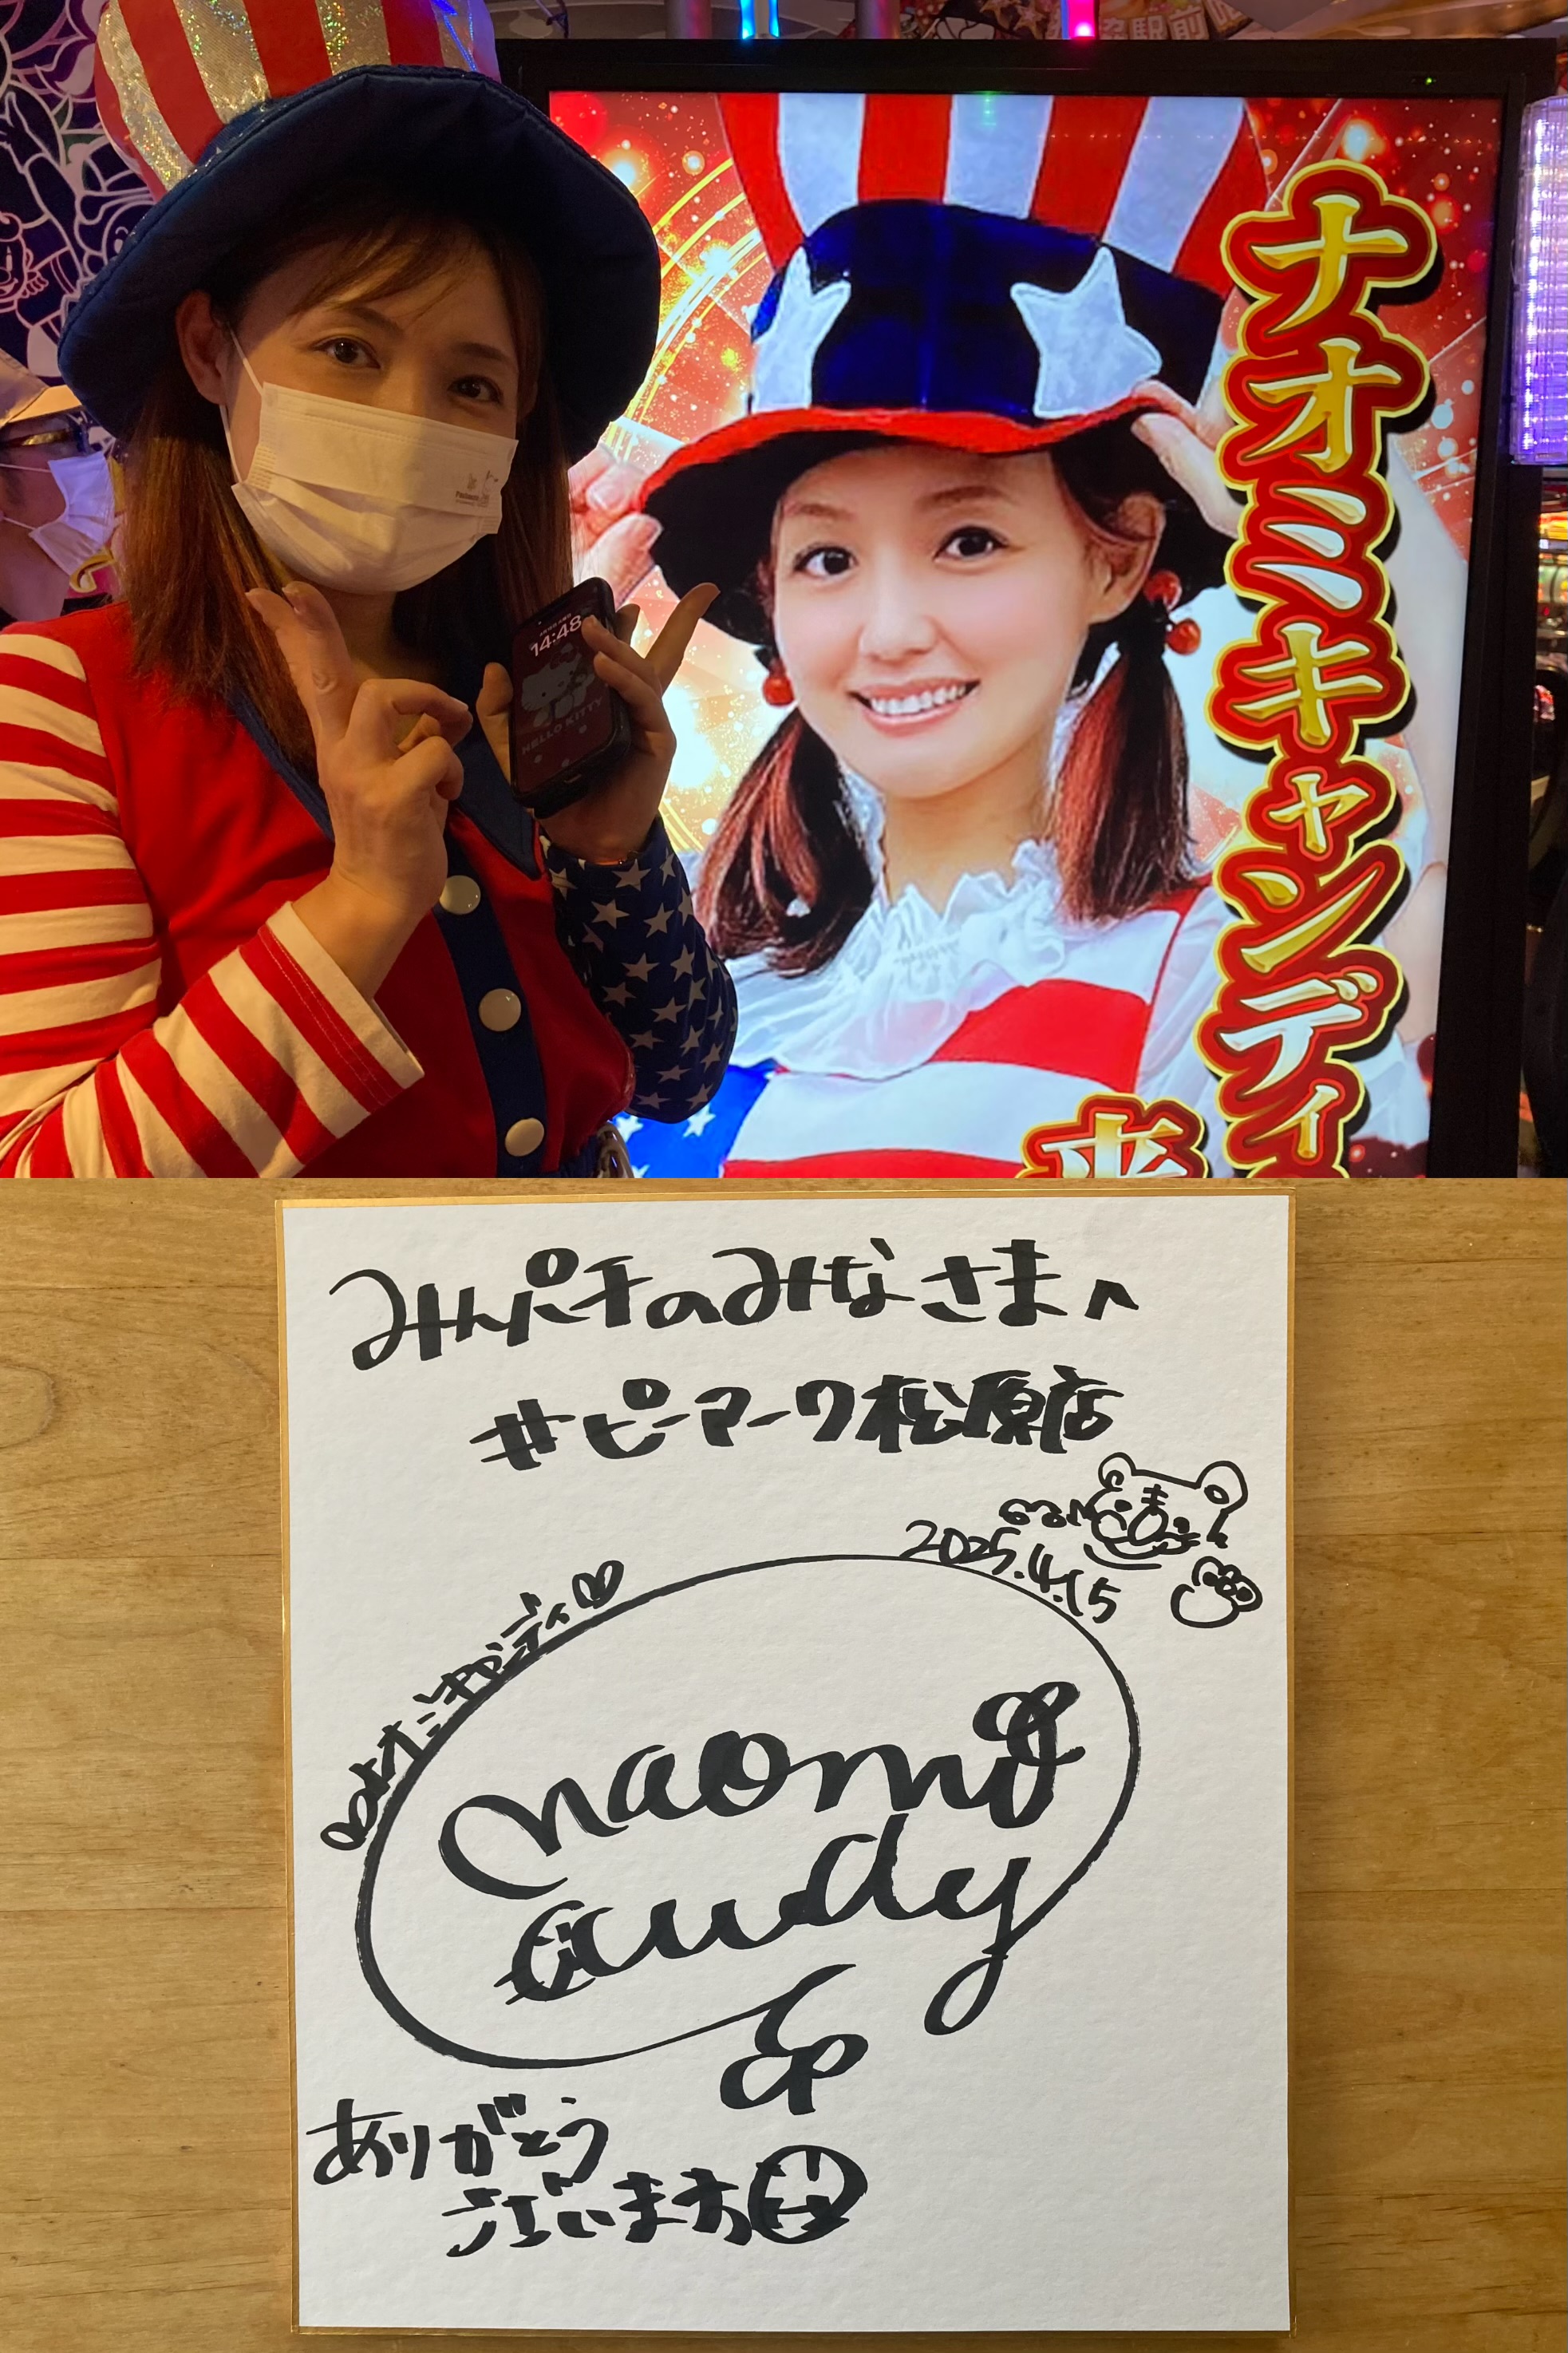 ナオミキャンディ
来
14:48
HELLO KITTY
みんパチのみなさまへ
#ピーマーク松原店
がおー
2025.4.15
♡ナオミキャンディ♡
naomi
candy
ありがとう
ございます